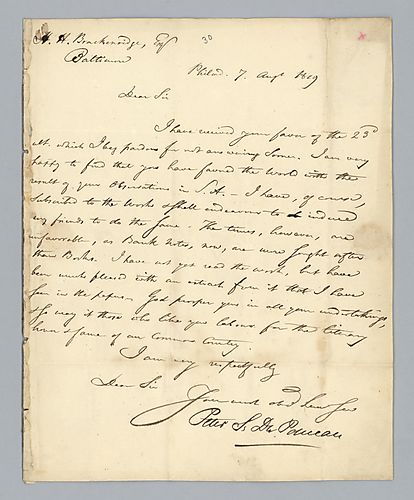 H. H. Brackenridge, Esqr
30
x
Baltimore
Philad. 7. Augt 1819
Dear Sir
I have received your favor of the 23d
ult. which I beg pardon for not answering sooner. I am very
happy to find that you have favored the World with the
result of your Observations in S.A. — I have, of course,
subscribed to the Work & shall endeavour to induce
my friends to do the same. The times, however, are
unfavorable, as Bank notes, now, are more sought after
than Books. I have not yet read the work, but have
been much pleased with an extract from it that I have
seen in the papers. God prosper you in all your undertakings,
& so may it those who like you labour for the literary
honor & fame of our Common Country.
I am very respectfully
Dear Sir
Your most obed hum Ser
Peter S. Du Ponceau